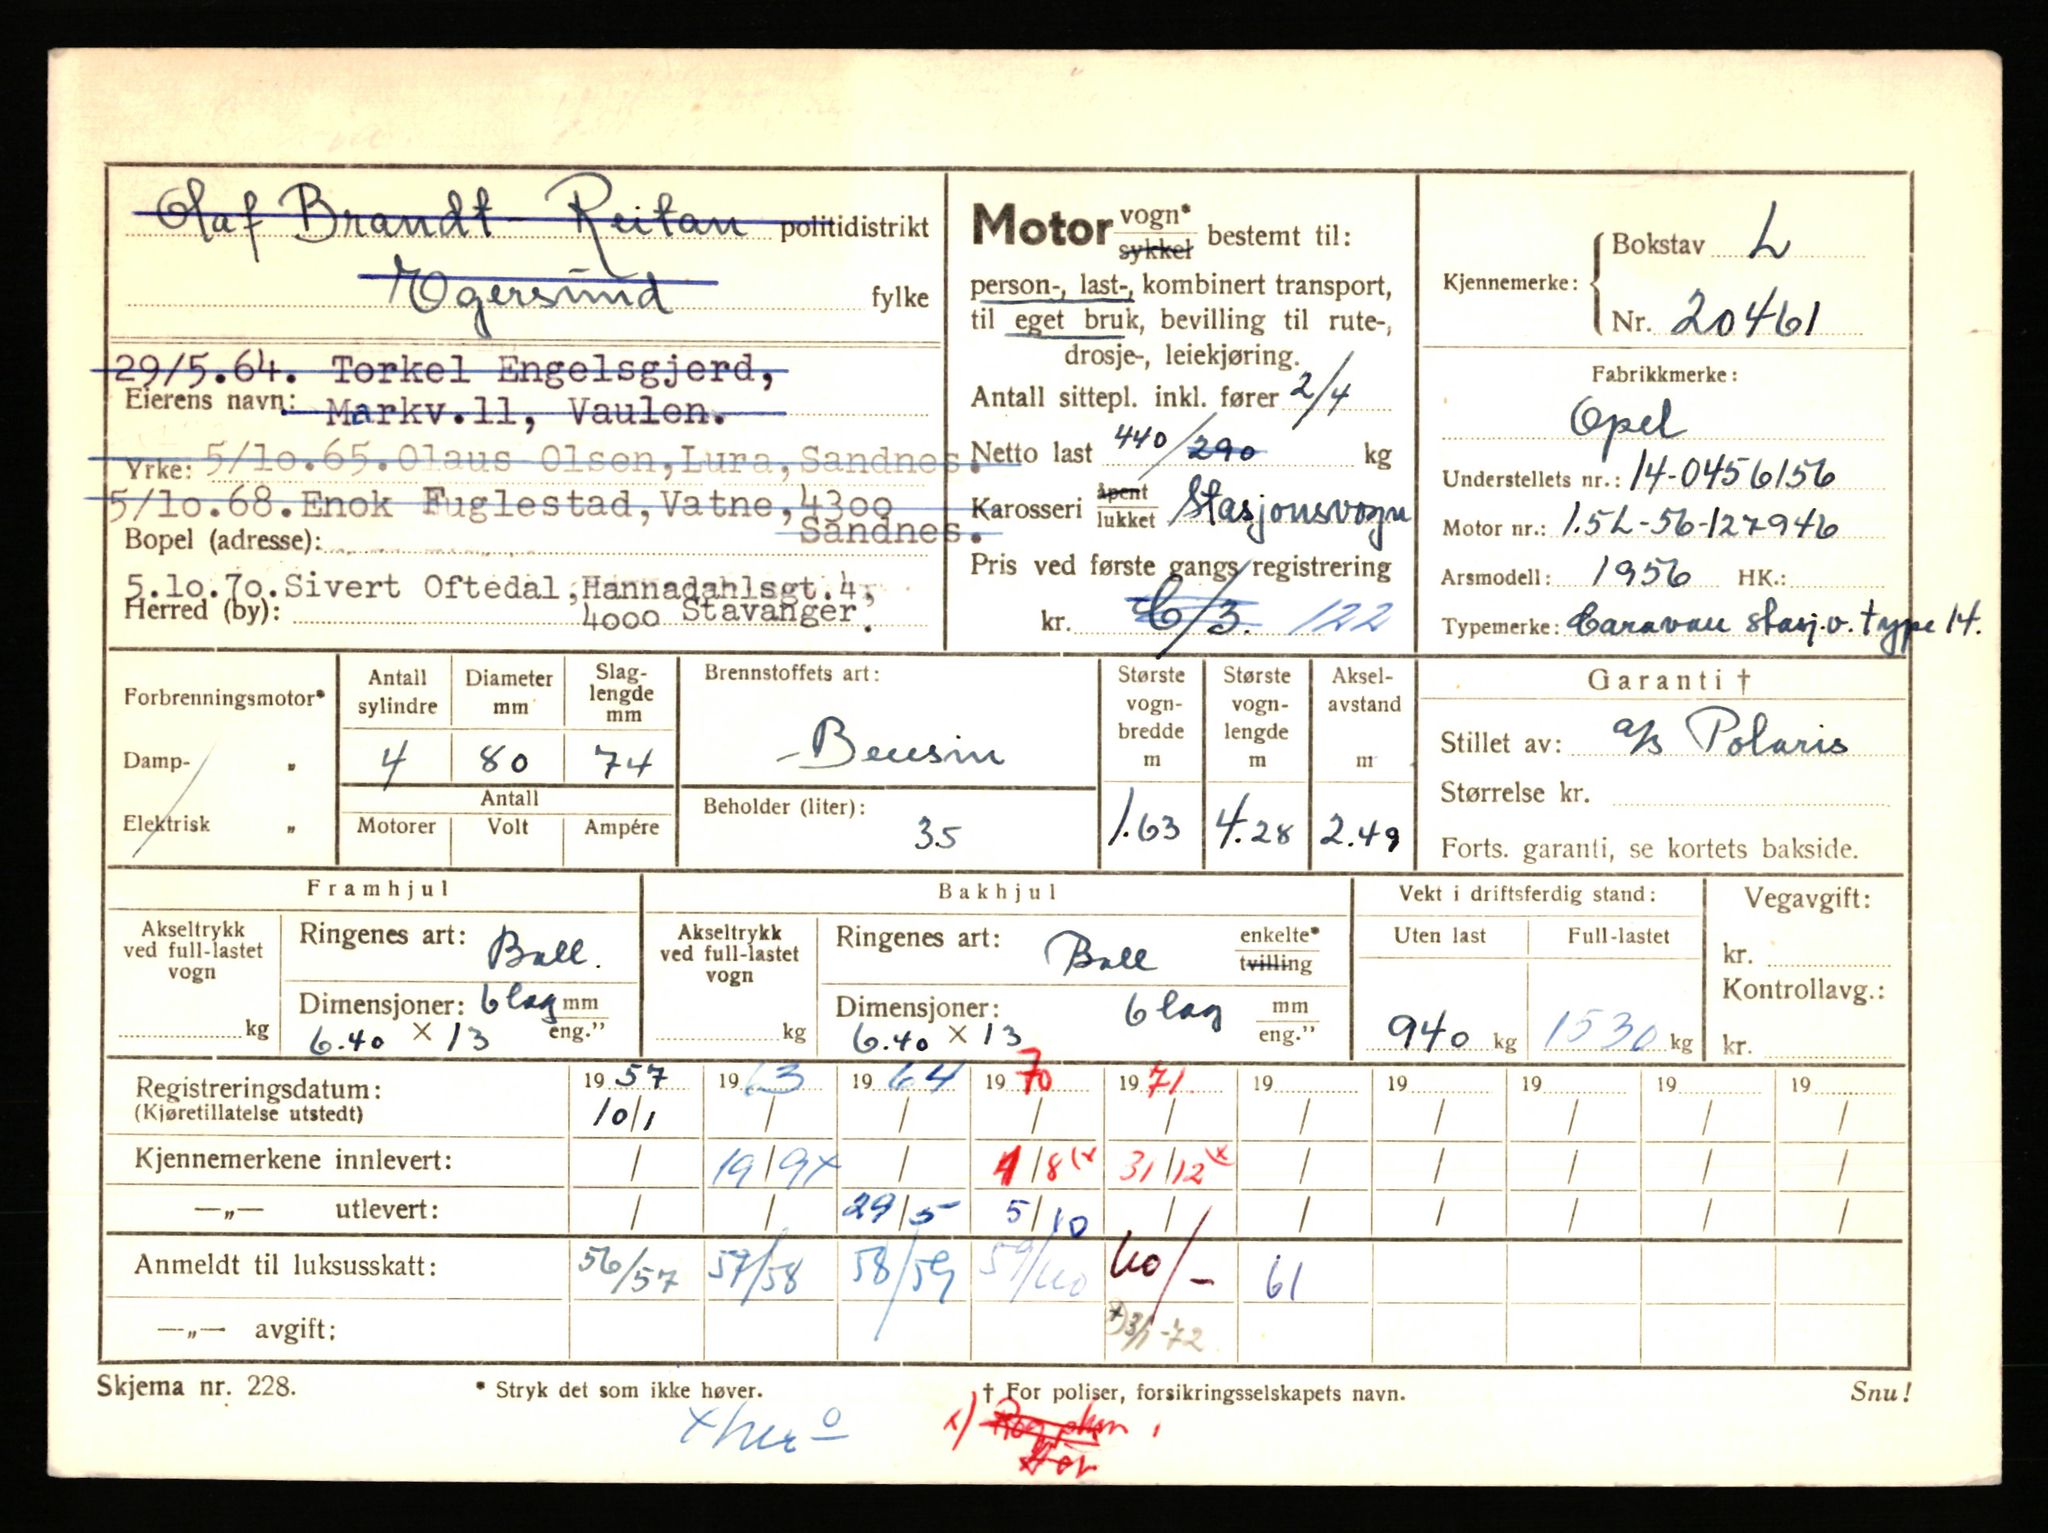 Olaf Brandt Reitan politidistrikt
Egersund fylke
29/5.64. Torkel Engelsgjerd,
Eierens navn: Markv.11, Vaulen.
Yrke: 5/10.65.Olaus Olsen,Lura,Sandnes.
5/10.68.Enok Fuglestad,Vatne,4300
Sandnes.
Bopel (adresse):
5.10.70.Sivert Oftedal,Hannadahlsgt.4,
Herred (by): 4000 Stavanger.
Motor vogn* sykkel bestemt til:
person-, last-, kombinert transport,
til eget bruk, bevilling til rute-,
drosje-, leiekjøring.
Antall sittepl. inkl. fører 2/4
Netto last 440/290 kg
Karosseri åpent lukket Stasjonsvogn
Pris ved første gangs registrering
kr. 122
Kjennemerke: Bokstav L
Nr. 20461
Fabrikkmerke:
Opel
Understellets nr.: 14-0456156
Motor nr.: 1.5L-56-127946
Arsmodell: 1956 HK.:
Typemerke: Caravan stasj.v. type 14.
Forbrenningsmotor*
Damp- „
Elektrisk „
Antall sylindre 4
Diameter mm 80
Slaglengde mm 74
Antall
Motorer Volt Ampére
Brennstoffets art:
Bensin
Beholder (liter):
35
Største vognbredde m 1.63
Største vognlengde m 4.28
Akselavstand m 2.49
Garanti †
Stillet av: a/s Polaris
Størrelse kr.
Forts. garanti, se kortets bakside.
Framhjul
Akseltrykk ved full-lastet vogn kg
Ringenes art: Ball.
Dimensjoner: 6 lag mm
6.40 x 13 eng.”
Bakhjul
Akseltrykk ved full-lastet vogn kg
Ringenes art: Ball enkelte* tvilling
Dimensjoner: 6 lag mm
6.40 x 13 eng.”
Vekt i driftsferdig stand:
Uten last Full-lastet
940 kg 1530 kg
Vegavgift:
kr.
Kontrollavg.:
kr.
Registreringsdatum: 1957 1963 1964 1970 1971 19 19 19 19 19
(Kjøretillatelse utstedt) 10/1 / / / / / / / / /
Kjennemerkene innlevert: / 19/9x / 1/8 (x 31/12 (x / / / / /
—„— utlevert: / / 29/5 5/10 / / / / / /
Anmeldt til luksusskatt: 56/57 57/58 58/59 59/60 60/- 61
—„— avgift: x) 3/1-72
Skjema nr. 228. * Stryk det som ikke høver. † For poliser, forsikringsselskapets navn. Snu!
x)